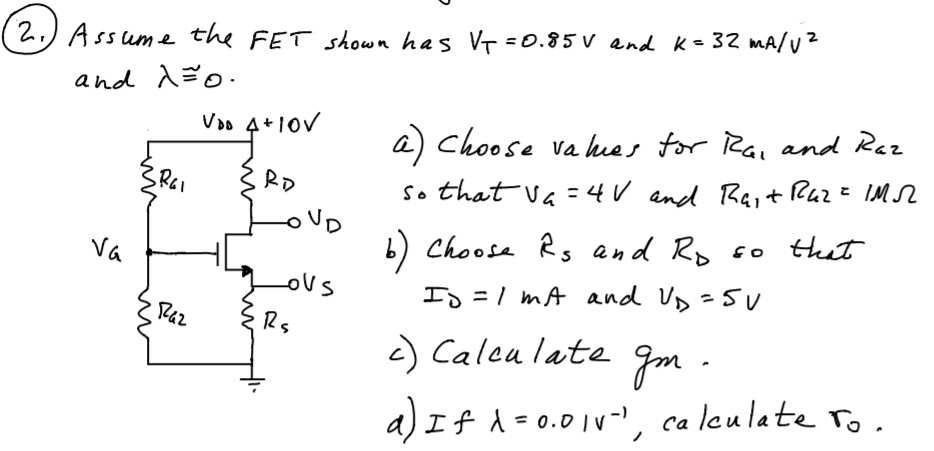 2. Assume the FET shown has VT = 0.85 V and K = 32 mA/V²
and λ ≅ 0.
VDD +10V
a) Choose values for RG1 and RG2
RG1
RD
so that VG = 4 V and RG1 + RG2 = 1MΩ
VD
VG
b) Choose RS and RD so that
VS
ID = 1 mA and VD = 5 V
RG2
RS
c) Calculate gm.
d) If λ = 0.01V⁻¹, calculate ro.